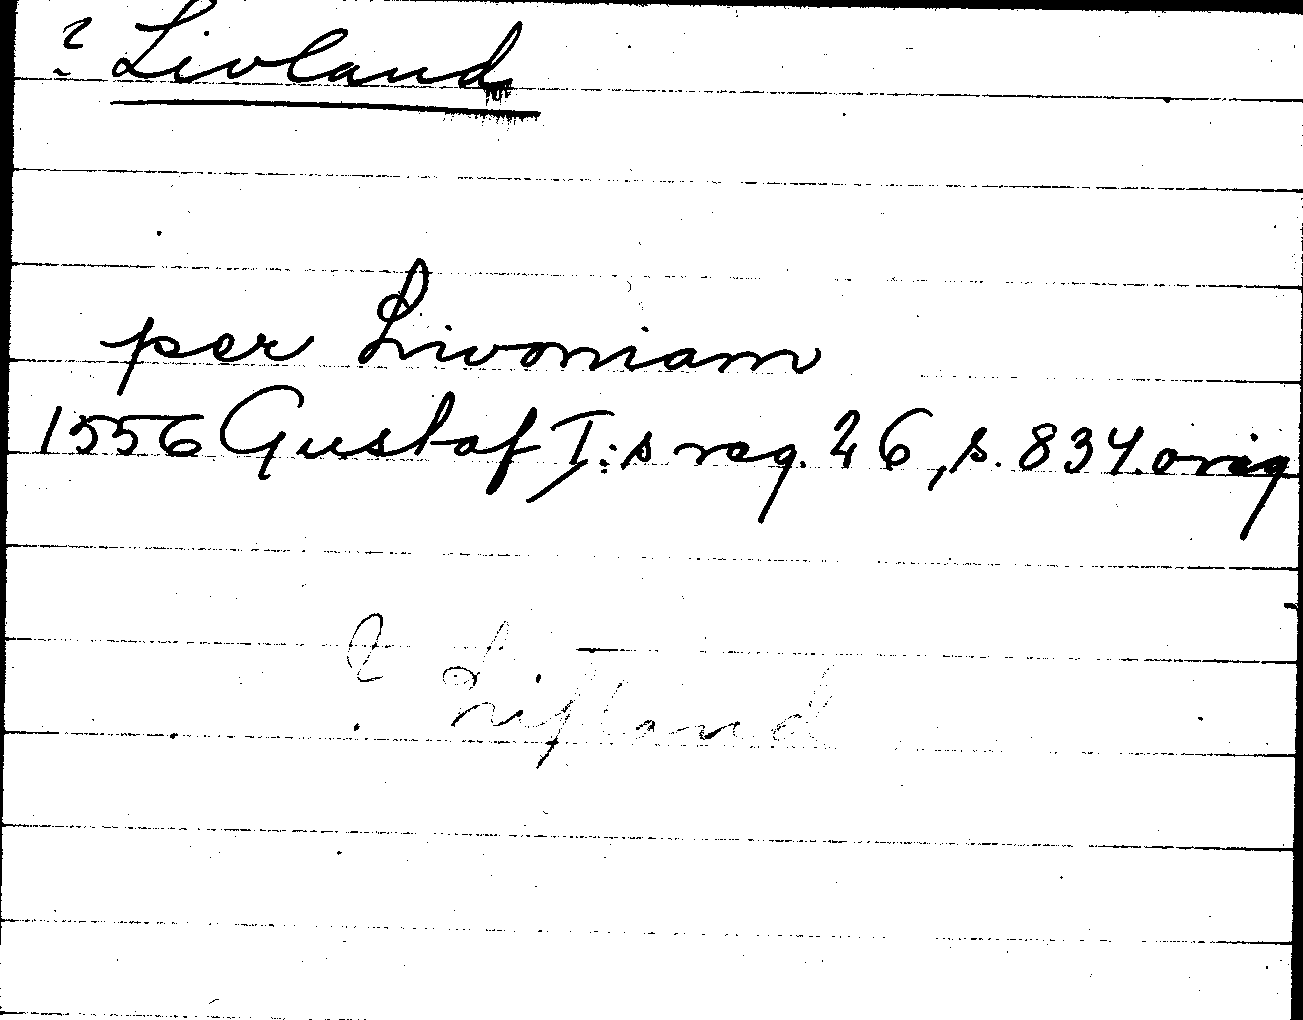 ? Livland
per Livoniam
1556 Gustaf I:s reg. 26, s. 834. orig
? Lifland